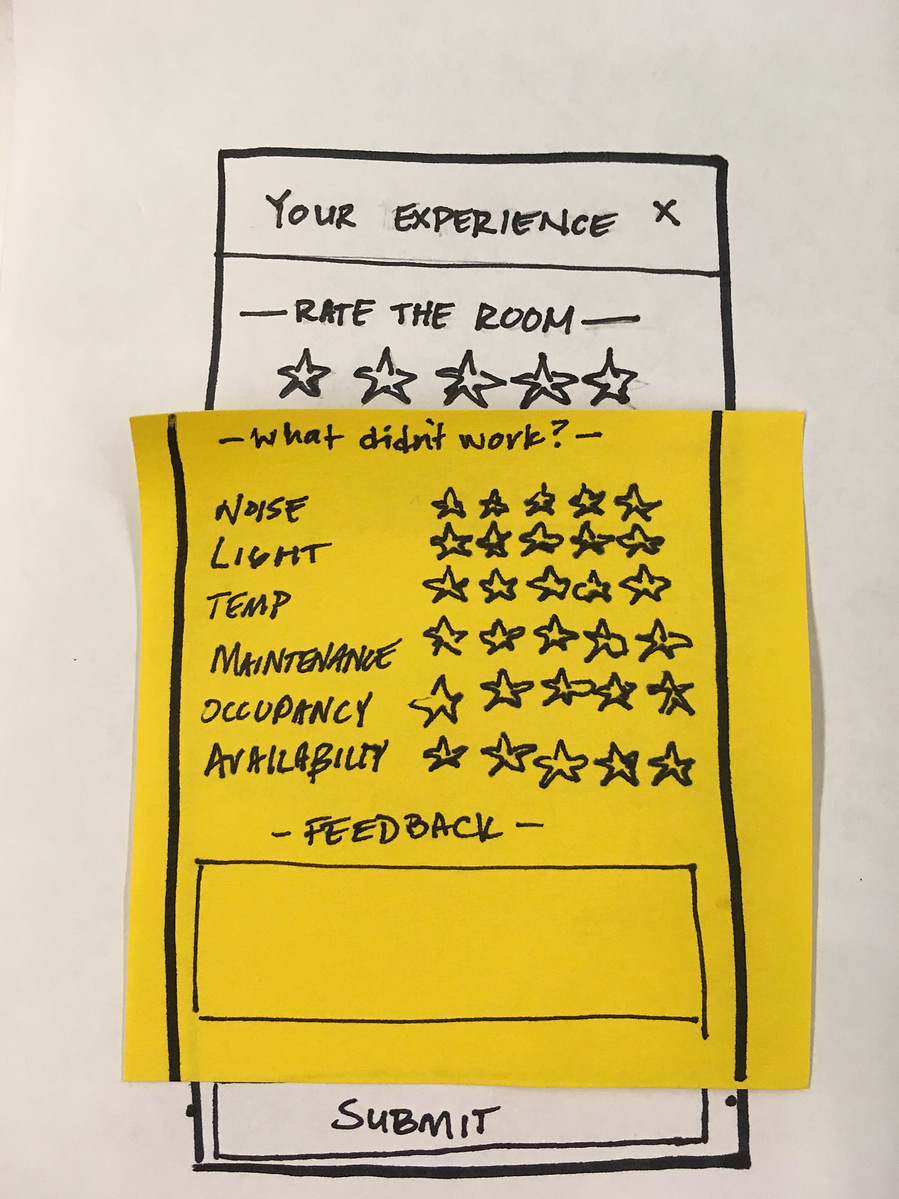 YOUR EXPERIENCE X
— RATE THE ROOM —
- What didn't work? -
NOISE
LIGHT
TEMP
MAINTENANCE
OCCUPANCY
AVAILABILITY
- FEEDBACK -
SUBMIT